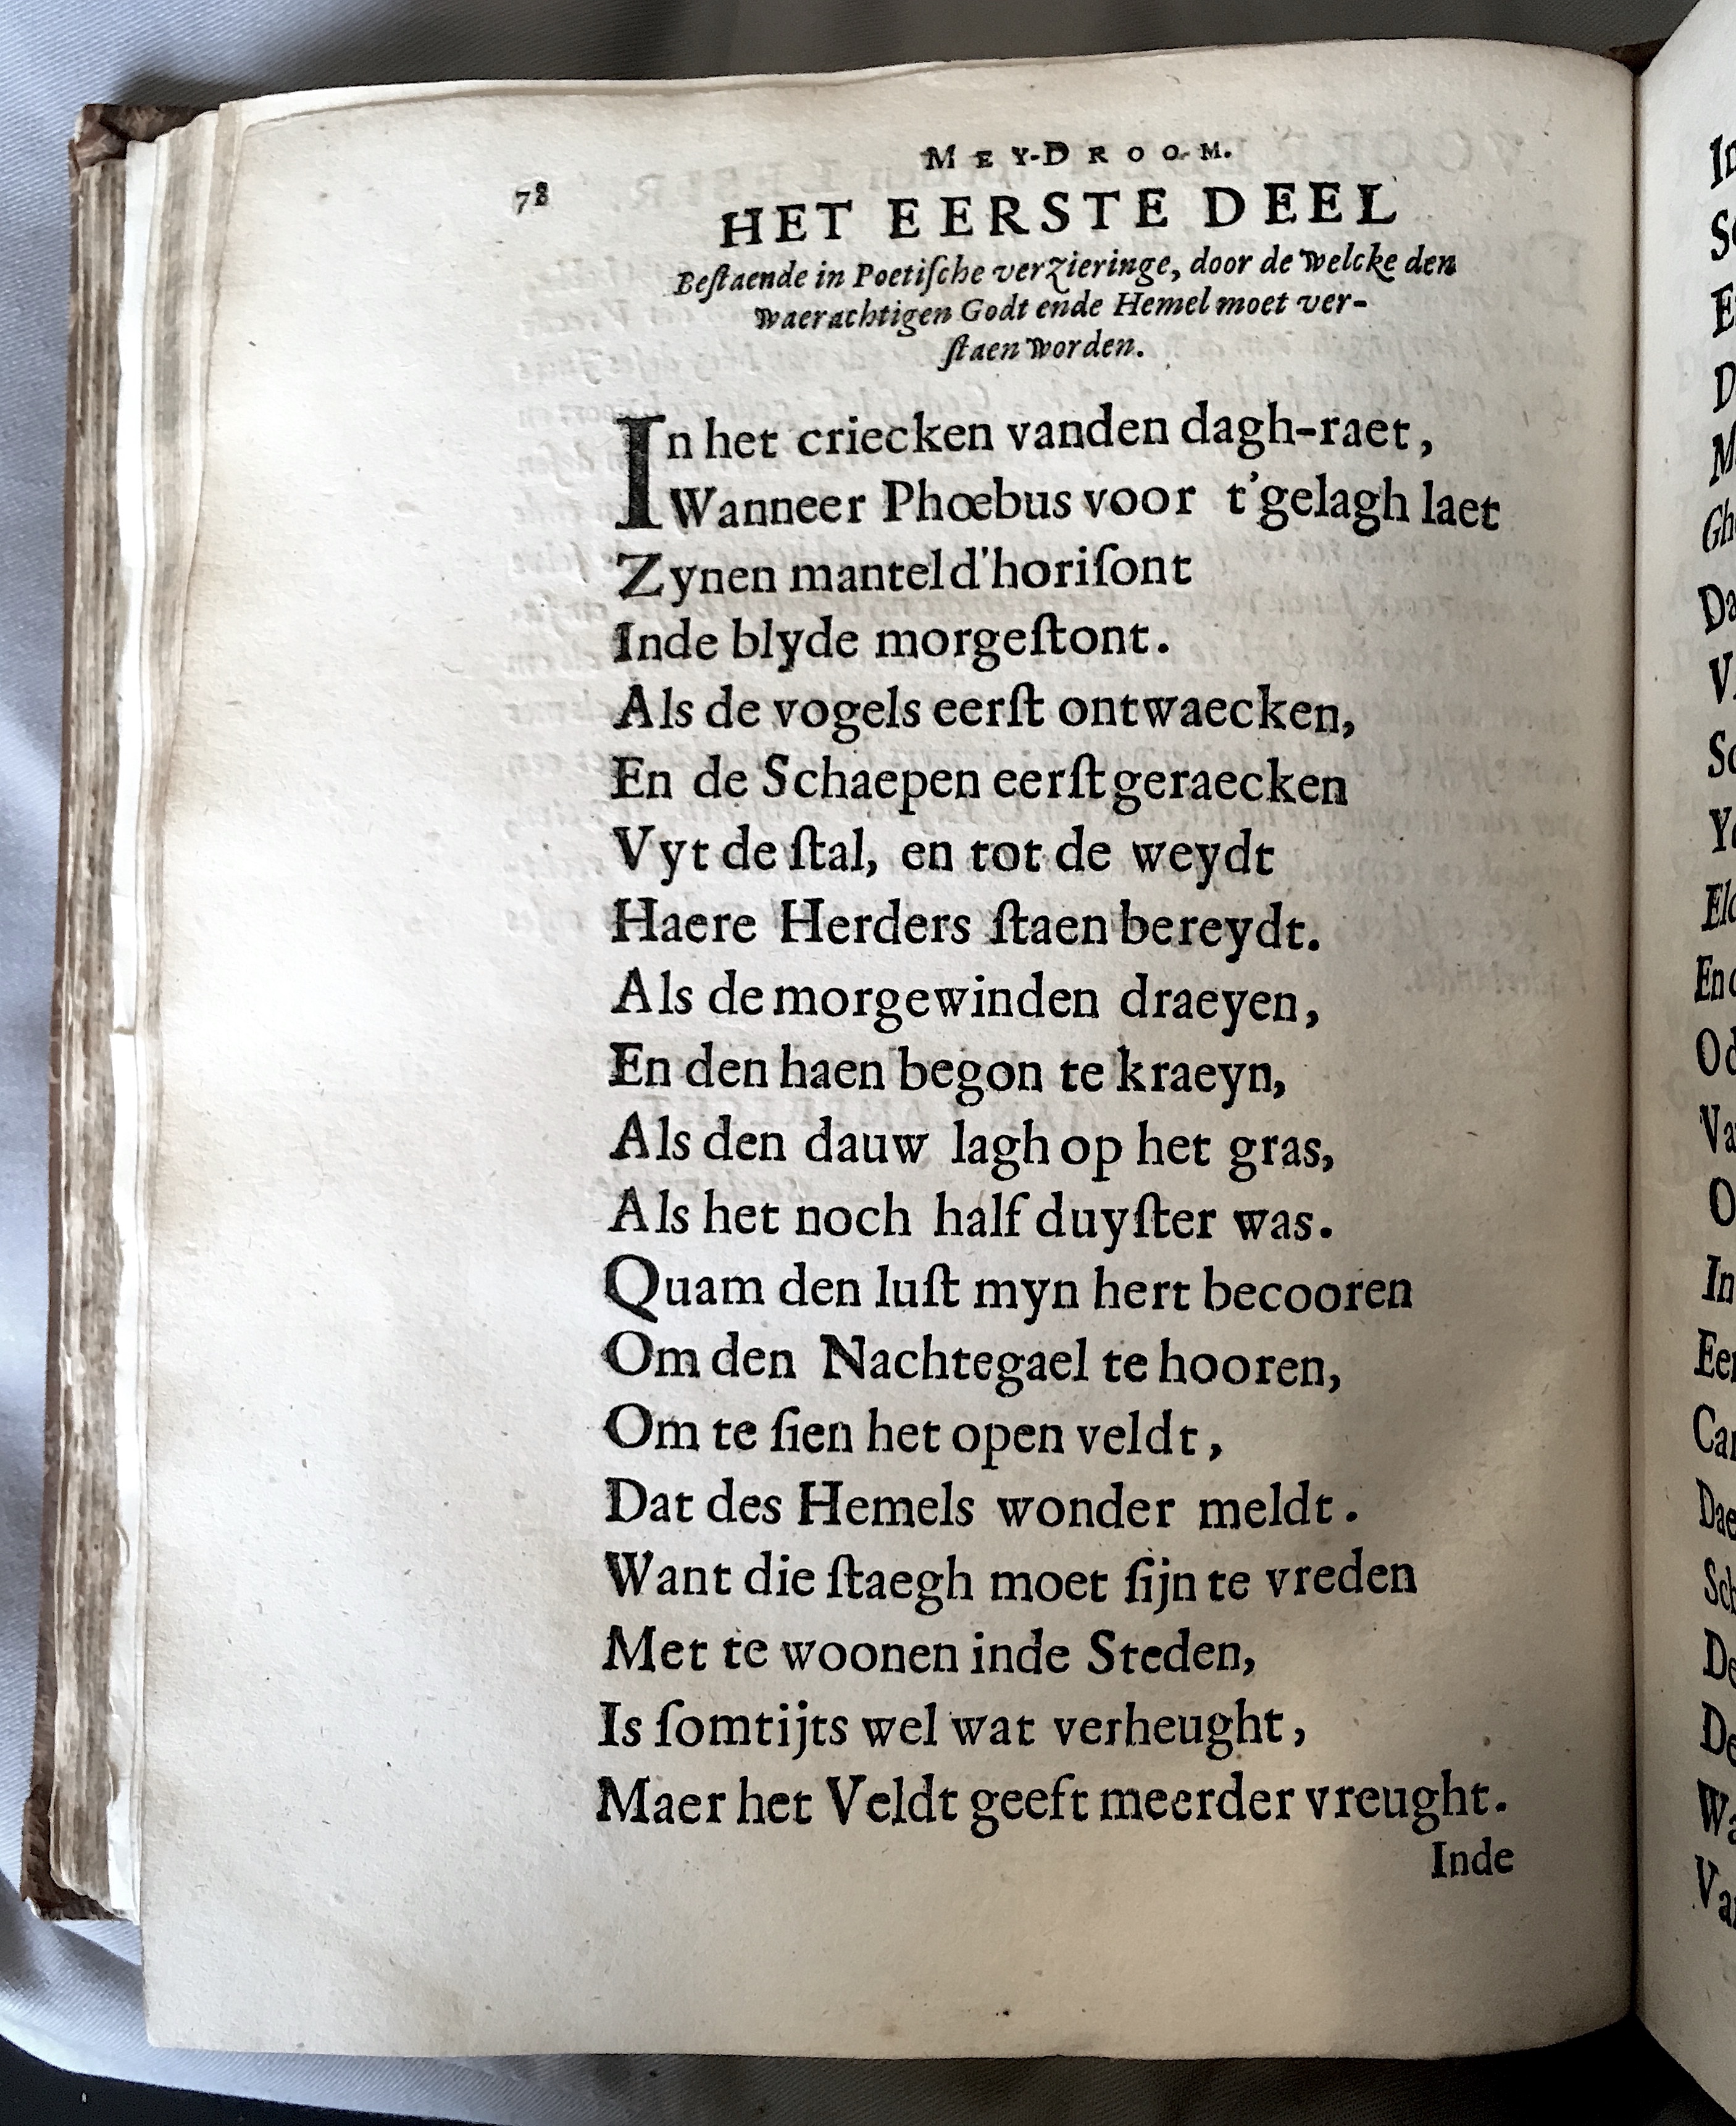 MEY-DROOM.
78
HET EERSTE DEEL
Beſtaende in Poetiſche verzieringe, door de welcke den
waerachtigen Godt ende Hemel moet ver-
ſtaen worden.
In het criecken vanden dagh-raet,
Wanneer Phœbus voor t'gelagh laet
Zynen mantel d'horiſont
Inde blyde morgeſtont.
Als de vogels eerſt ontwaecken,
En de Schaepen eerſt geraecken
Vyt de ſtal, en tot de weydt
Haere Herders ſtaen bereydt.
Als de morgewinden draeyen,
En den haen begon te kraeyn,
Als den dauw lagh op het gras,
Als het noch half duyſter was.
Quam den luſt myn hert becooren
Om den Nachtegael te hooren,
Om te ſien het open veldt,
Dat des Hemels wonder meldt.
Want die ſtaegh moet ſijn te vreden
Met te woonen inde Steden,
Is ſomtijts wel wat verheught,
Maer het Veldt geeft meerder vreught.
Inde